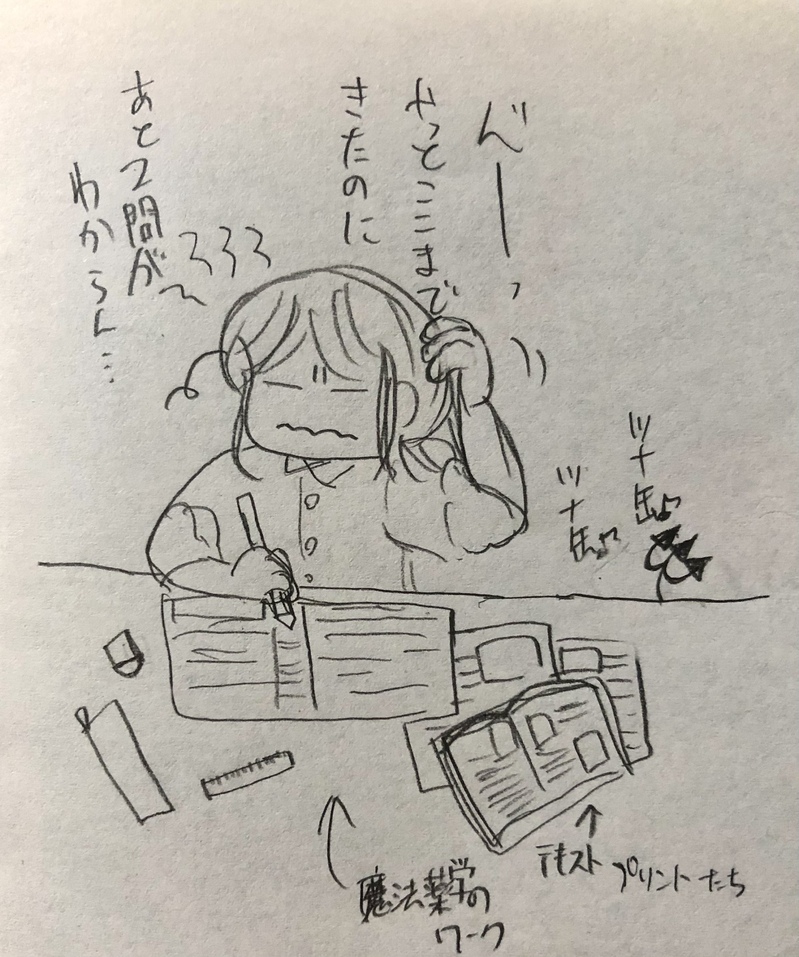 んーっ
やっとここまで
きたのに
あと2問が〜
わからん…
ツナ缶♪
ツナ缶♪
魔法薬学の
ワーク
テキスト
プリントたち